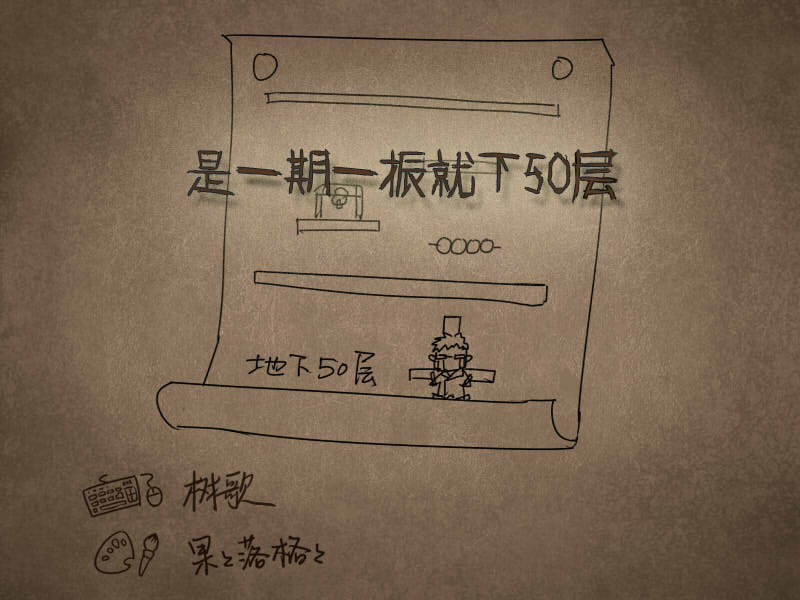 是一期一振就下50层
地下50层
桝歌
果々落格々